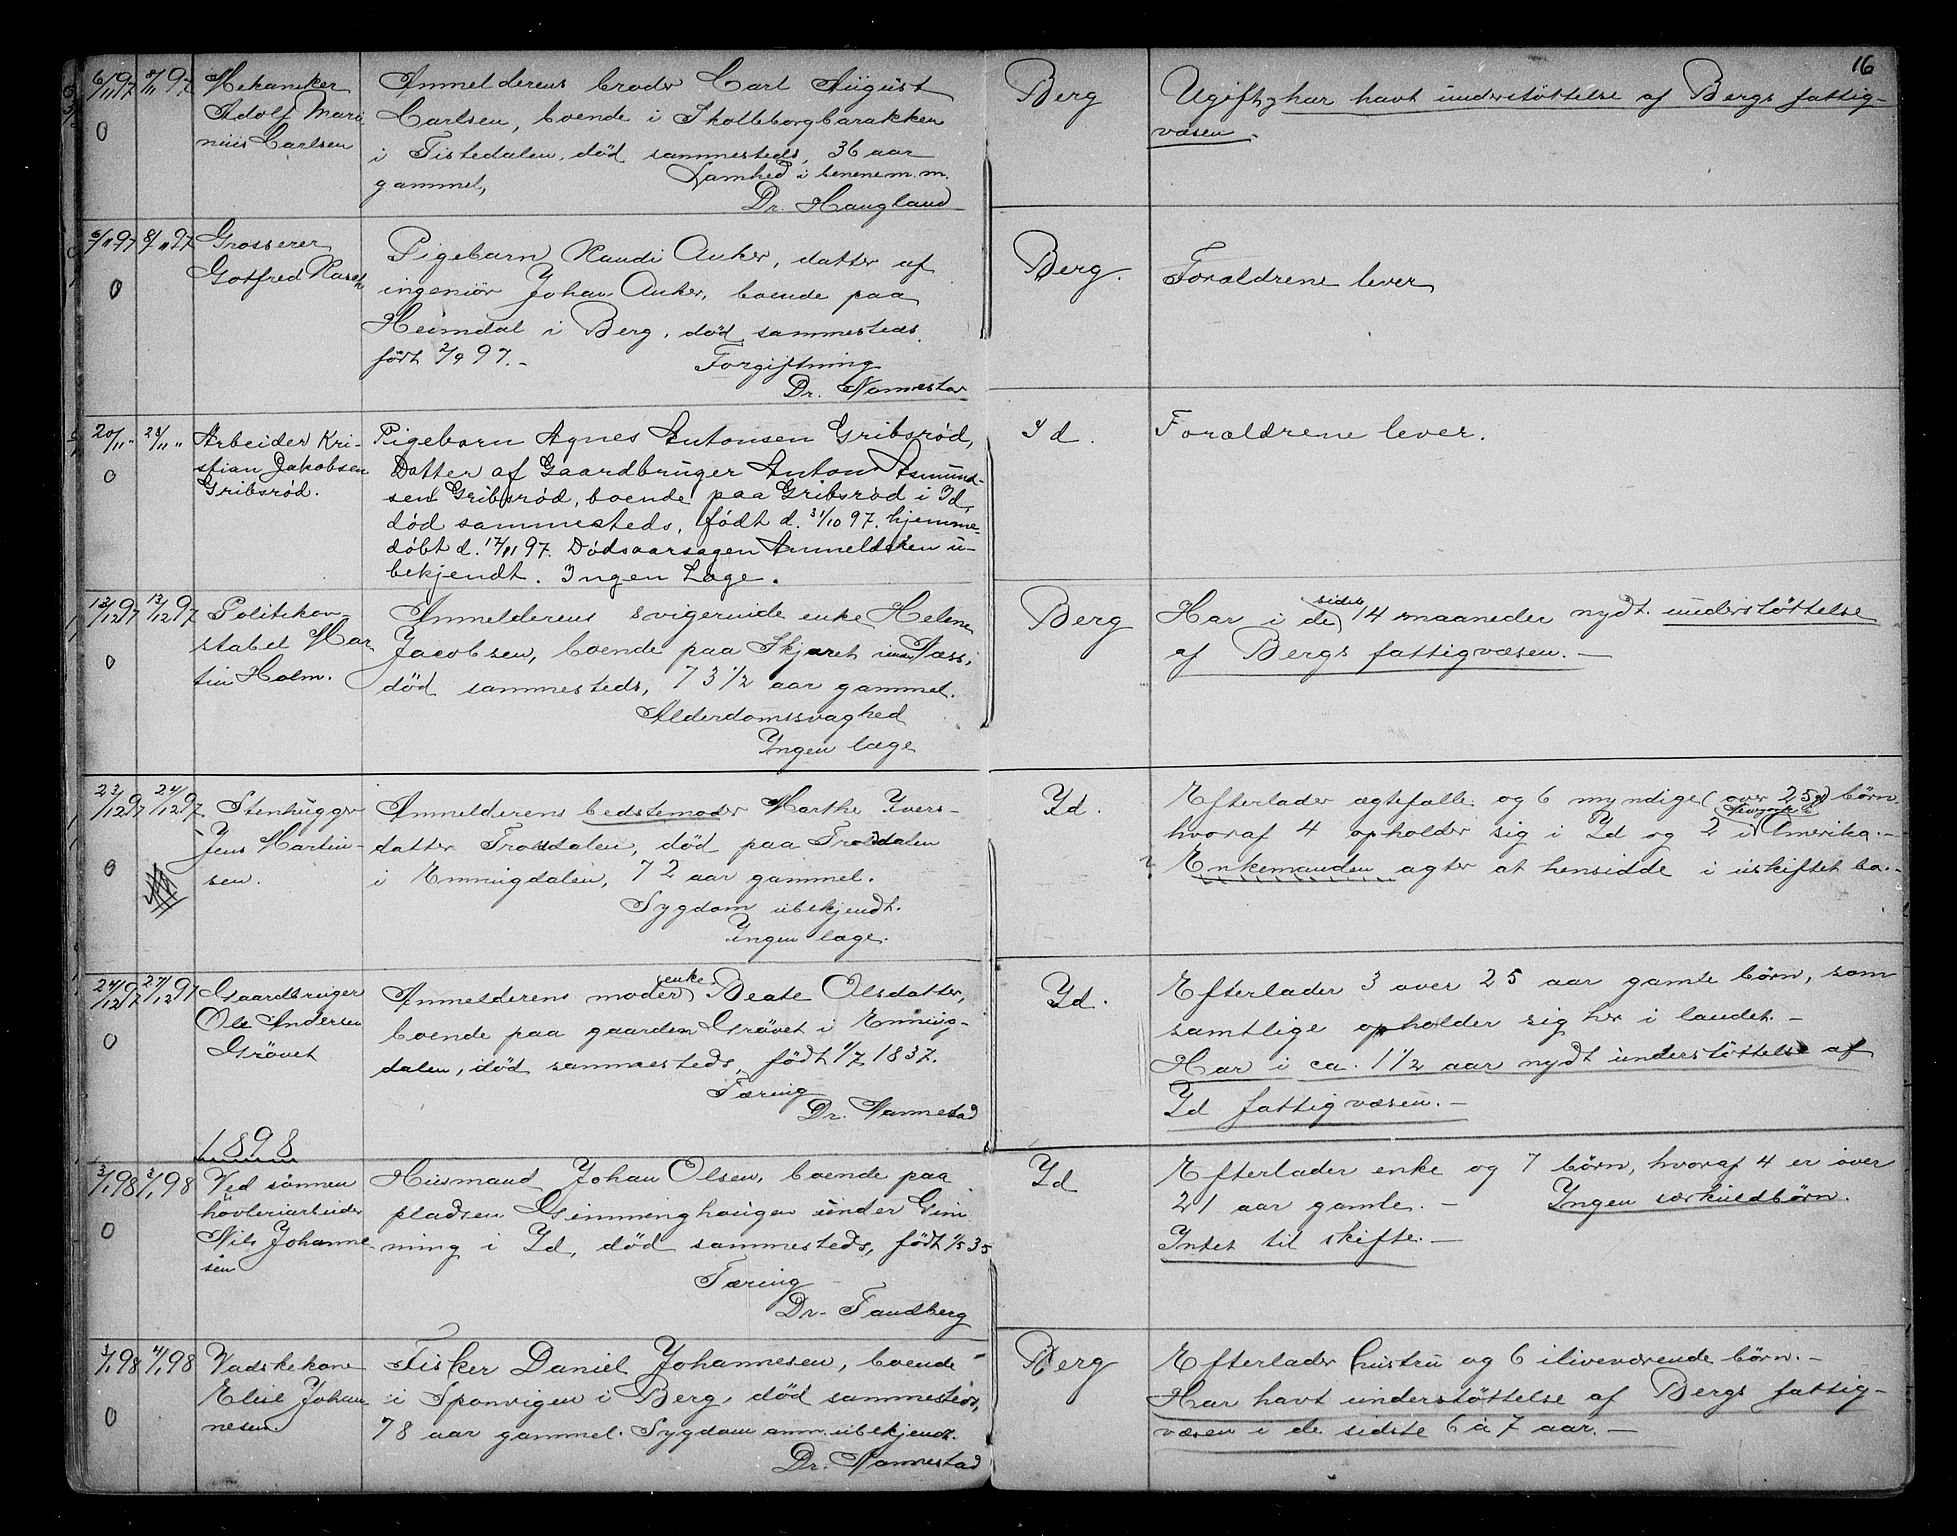 16
6/11 97 8/11 97 Mekaniker
Adolf Mari
nius Carlsen
0
Anmelderens broder Carl August
Carlsen, boende i Skotteborgbarakken
i Tistedalen, død sammesteds, 36 aar
gammel, Lamhed i benene m.m.
Dr. Haugland
Berg
Ugift, har havt understøttelse af Bergs fattig-
væsen.
6/11 97 8/11 97 Grosserer
Gotfred
0
Pigebarn Randi Anker, datter af
ingeniør Johan Anker, boende paa
Heimdal i Berg, død sammesteds
født 2/9 97.-
Forgiftning
Dr. Nannestad
Berg.
Forældrene lever
20/11 " 23/11 " Arbeider Kri-
stian Jakobsen
Gribsrød.
0
Pigebarn Agnes Antonsen Gribsrød,
Datter af Gaardbruger Anton Asmund-
sen Gribsrød, boende paa Gribsrød i Id,
død sammesteds, født d. 31/10 97. hjemme-
døbt d. 17/11 97. Dødsaarsagen Anmelderen u-
bekjendt. Ingen Læge.
Id.
Forældrene lever.
13/12 97 13/12 97 Politikon-
stabel Mar
tin Holm.
0
Anmelderens svigerinde enke Helene
Jacobsen, boende paa Skjæret Næss,
død sammesteds, 73 1/2 aar gammel.
Alderdomssvaghed
Ingen læge
Berg
Har i de sidste 14 maaneder nydt understøttelse
af Bergs fattigvæsen.-
23/12 97 24/12 97 Stenhugger
Jens Martin-
sen.
0
Anmelderens bedstemoder Marthe Ivers-
datter Troldalen, død paa Troldalen
i Enningdalen, 72 aar gammel.
Sygdom ubekjendt.
Ingen læge.
Yd.
Efterlader ægtefælle og 6 myndige (over 25 g) børn
hvoraf 4 opholder sig i Yd og 2 i Amerika.-
Enkemanden agter at hensidde i uskiftet bo.-
24/12 97 27/12 97 Gaardbruger
Ole Andersen
Grövet
0
Anmelderens moder enke Beate Olsdatter,
boende paa gaarden Grövet i Ennings-
dalen, død sammesteds, født 1/7 1837.
Tæring
Dr. Nannestad
Yd.
Efterlader 3 over 25 aar gamle børn, som
samtlige opholder sig her i landet.-
Har i ca. 1 1/2 aar nydt understøttelse af
Yd fattigvæsen.-
1898
3/1 98 3/1 98 Ved sönnen
hövleriarbeider
Nils Johanne-
sen
0
Husmand Johan Olsen, boende paa
pladsen Gimminghaugen under Gim
ming i Yd, død sammesteds, født 1/5 35
Tæring
Dr. Tandberg
Yd
Efterlader enke og 7 børn, hvoraf 4 er over
21 aar gamle.- Ingen særkuldbørn.
Intet til skifte.-
3/1 98 4/1 98 Vadskekone
Elise Johan
nesen.
0
Fisker Daniel Johannesen, boende
i Sponvigen i Berg, død sammesteds,
78 aar gammel. Sygdom anm. ubekjendt.
Dr. Nannestad
Berg
Efterlader hustru og 6 ilivevørende børn.-
Har havt understøttelse af Bergs fattig-
væsen i de sidste 6 à 7 aar.-